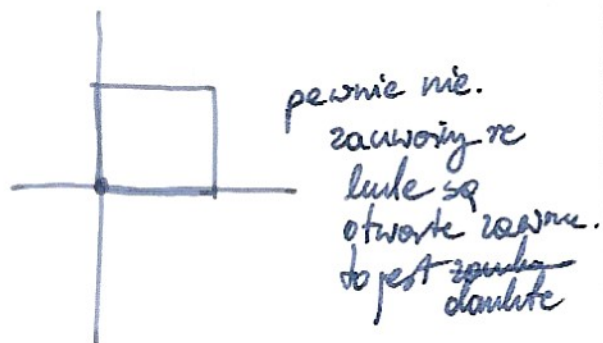 pewnie nie.
zauważmy że
kule są
otwarte zawsze.
to jest